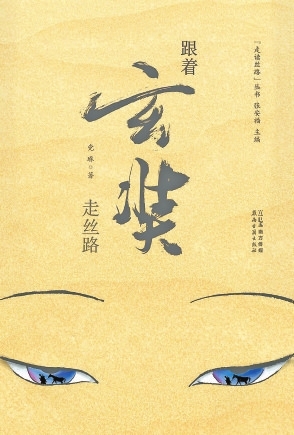 『走读丝路』丛书 张安福 主编
跟着
玄奘
走丝路
党琳◎著